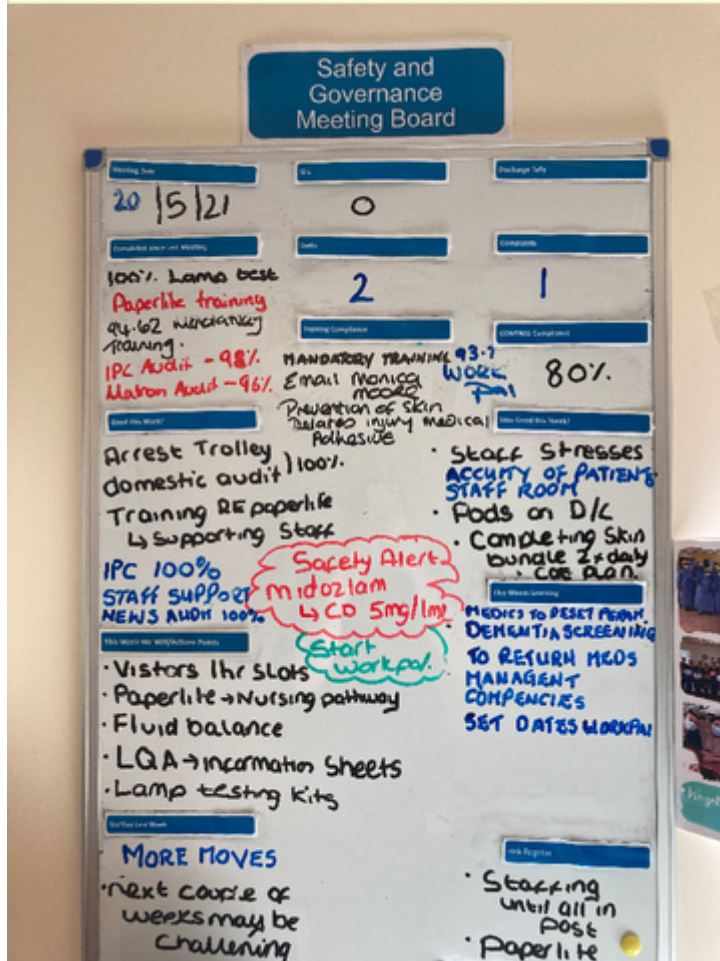 Safety and
Governance
Meeting Board
Meeting Date
20/5/21
SI's
0
Discharge Tally
Completed since last Meeting
100% Lamp test
Paperlite training
94.62 Mandatory
Training.
IPC Audit - 98%
Matron Audit - 96%
Datix
2
Complaints
1
Training Compliance
MANDATORY TRAINING 93.7
Email Monica
Moore
WORK
PAL
Prevention of Skin
Related injury medical
Adhesive
Compliance
80%
Good this Week?
Arrest Trolley
domestic audit } 100%.
Training RE paperlife
↳ Supporting Staff
IPC 100%
STAFF SUPPORT
NEWS AUDIT 100%
Less Good this Week?
• Staff Stresses
ACCUITY OF PATIENTS
STAFF ROOM
• Pods on D/C
• Completing Skin
bundle 2x daily
• COE PLAN.
Safety Alert
midozlam
↳ CD 5mg/1ml
Start
Workpal.
This Weeks Learning
MEDICS TO RESET
DEMENTIA SCREENING
TO RETURN MEDS
MANAGENT
COMPENCIES
SET DATES WORKPAL
This Week We Will/Action Points
• Vistors 1hr slots
• Paperlite → Nursing pathway
• Fluid balance
• LQA → information Sheets
• Lamp testing kits
Staffing Last Week
MORE MOVES
• next couple of
weeks may be
challening
Risk Register
• Staffing
until all in
Post
• Paperlite